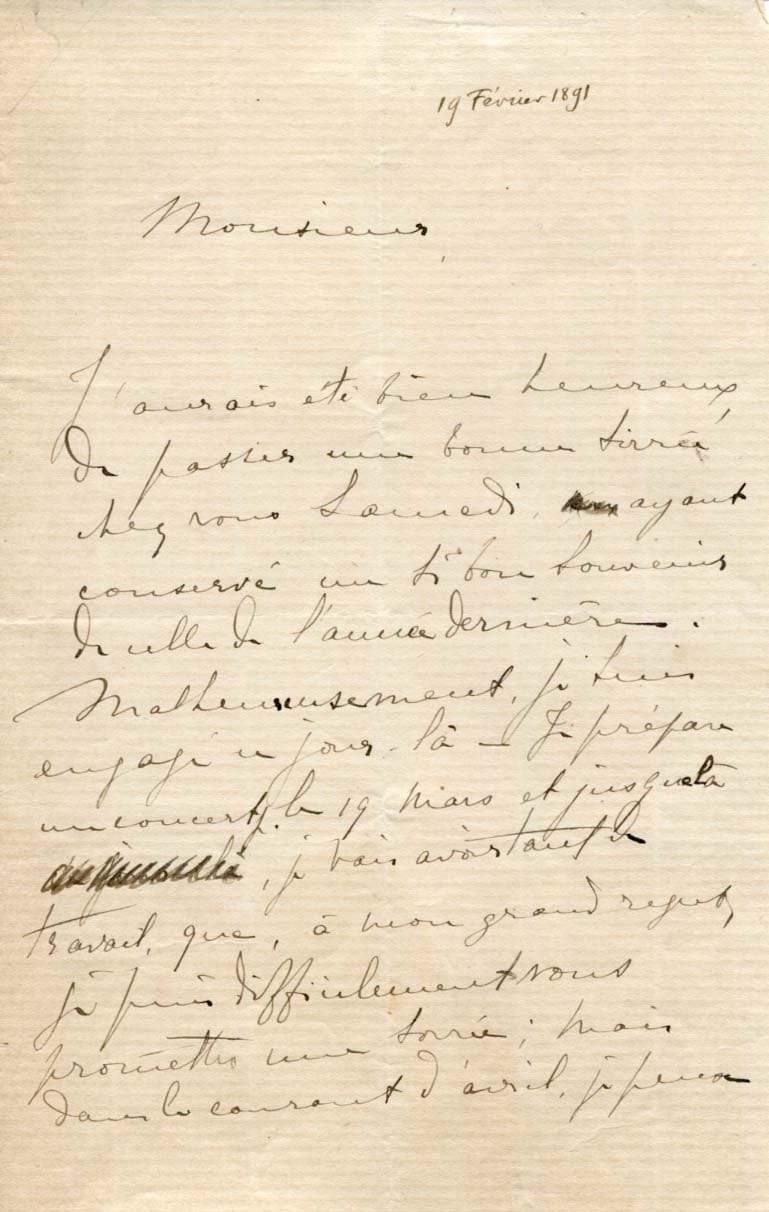 19 Février 1891
Monsieur,
J'aurais été bien heureux,
de passer une bonne soirée
chez vous Samedi, ayant
conservé un si bon souvenir
de celle de l'année dernière.
Malheureusement, je suis
engagé ce jour-là — Je prépare
un concert, le 19 Mars et jusque là
, je vais avoir tant de
travail, que, à mon grand regret,
je puis difficilement vous
promettre une soirée; mais
dans le courant d'avril, je pense